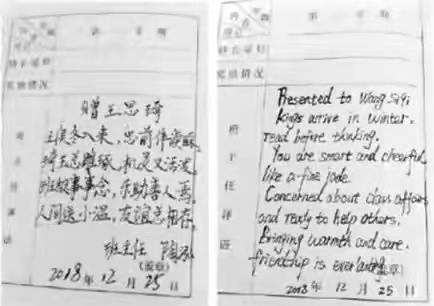 第 学 期
特长爱好
奖惩情况
赠王思琦
王侯冬入来,思前伴读
琦玉思雕琢,机灵又活泼
班级事事念,乐助善人焉
人间送小温,友谊 相存
班主任 陶
(盖章)
2018年12月25日
第 学 期
特长爱好
奖惩情况
班主任评语
Presented to Wang Siqi
Kings arrive in winter.
read before thinking.
You are smart and cheerful
like a fine jade.
Concerned about class affairs
and ready to help others.
Bringing warmth and care.
friendship is everlasting.
(盖章)
2018年12月25日